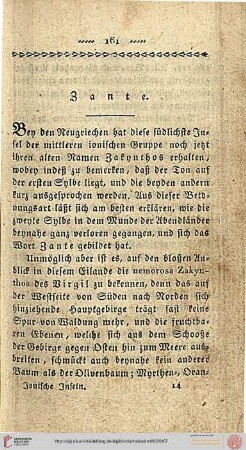 161
Zante.
Bey den Neugriechen hat diese südlichste In-
sel der mittleren ionischen Gruppe noch jetzt
ihren alten Namen Zakynthos erhalten,
wobey indeß zu bemerken, daß der Ton auf
der ersten Sylbe liegt, und die beyden andern
kurz ausgesprochen werden. Aus dieser Beto-
nungsart läßt sich am besten erklären, wie die
zweyte Sylbe in dem Munde der Abendländer
beynahe ganz verloren gegangen, und sich das
Wort Zante gebildet hat.
Unmöglich aber ist es, auf den bloßen An-
blick in diesem Eilande die nemorosa Zakyn-
thos des Virgil zu bekennen, denn das auf
der Westseite von Süden nach Norden sich
hinziehende Hauptgebirge trägt fast keine
Spur von Waldung mehr, und die fruchtba-
ren Ebenen, welche sich aus dem Schooße
der Gebirge gegen Osten hin zum Meere aus-
breiten, schmückt auch beynahe kein anderer
Baum als der Olivenbaum; Myrthen, Oran-
Ionische Inseln. 14